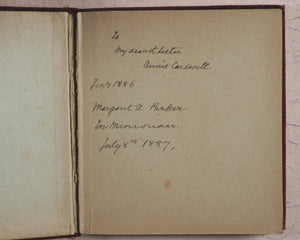 To
my dearest sister
Annie Cardwell
Jany 1886.
Margaret A. Parker
In Memoriam
July 8th 1887,